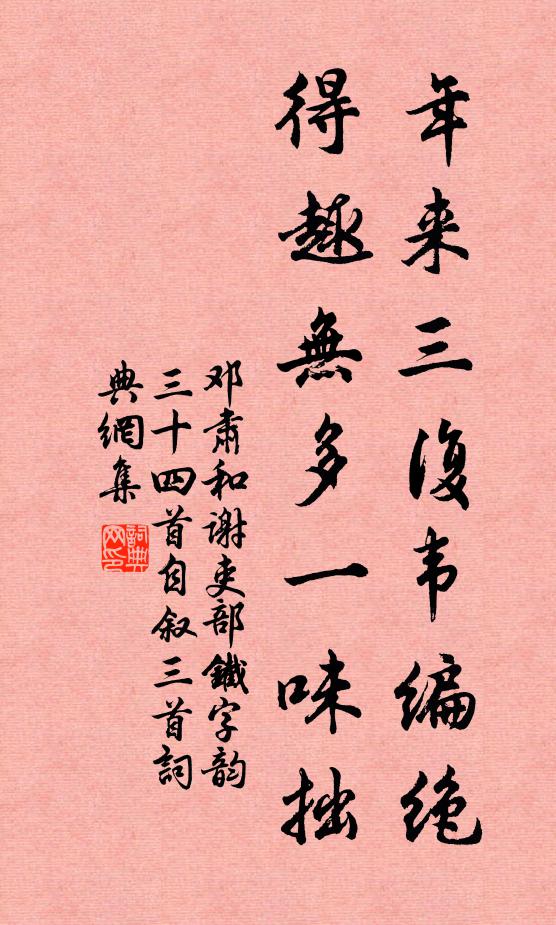 年来三復韦编绝
得趣無多一味拙
邓肃和谢吏部鐵字韵
三十四首自叙三首詞
典網集
詞典
网印